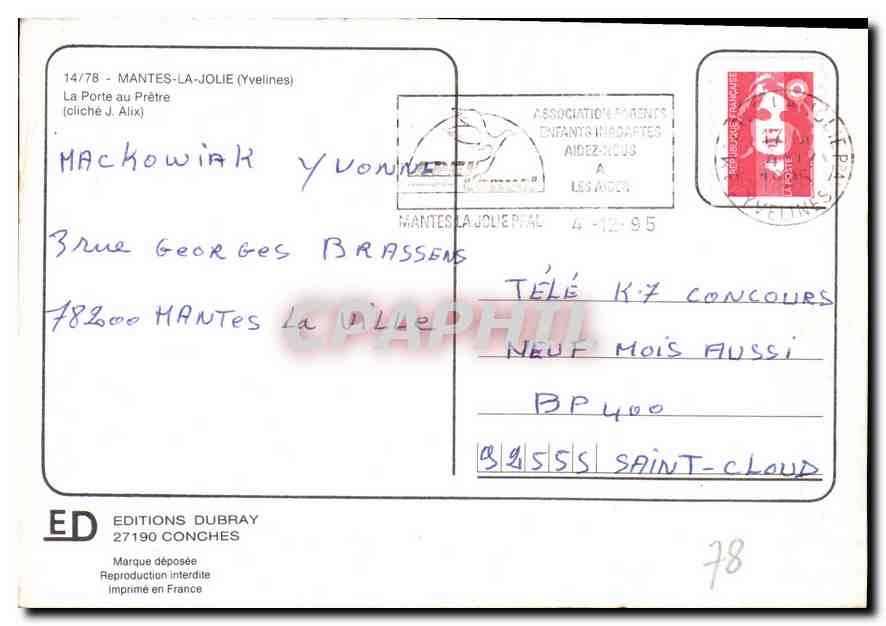 14/78 - MANTES-LA-JOLIE (Yvelines)
La Porte au Prêtre
(cliché J. Alix)
MACKOWIAK YVONNE
3 rue GEORGES BRASSENS
78200 MANTES La VILLE
ASSOCIATION PARENTS
ENFANTS INADAPTES
AIDEZ-NOUS
A
LES AIDER
MANTES LA JOLIE PPAL 4-12-95
REPUBLIQUE FRANÇAISE
LA POSTE
YVELINES
TÉLÉ K.7 CONCOURS
NEUF MOIS AUSSI
BP 400
92555 SAINT-CLOUD
CPAPHIL
ED
EDITIONS DUBRAY
27190 CONCHES
Marque déposée
Reproduction interdite
Imprimé en France
78